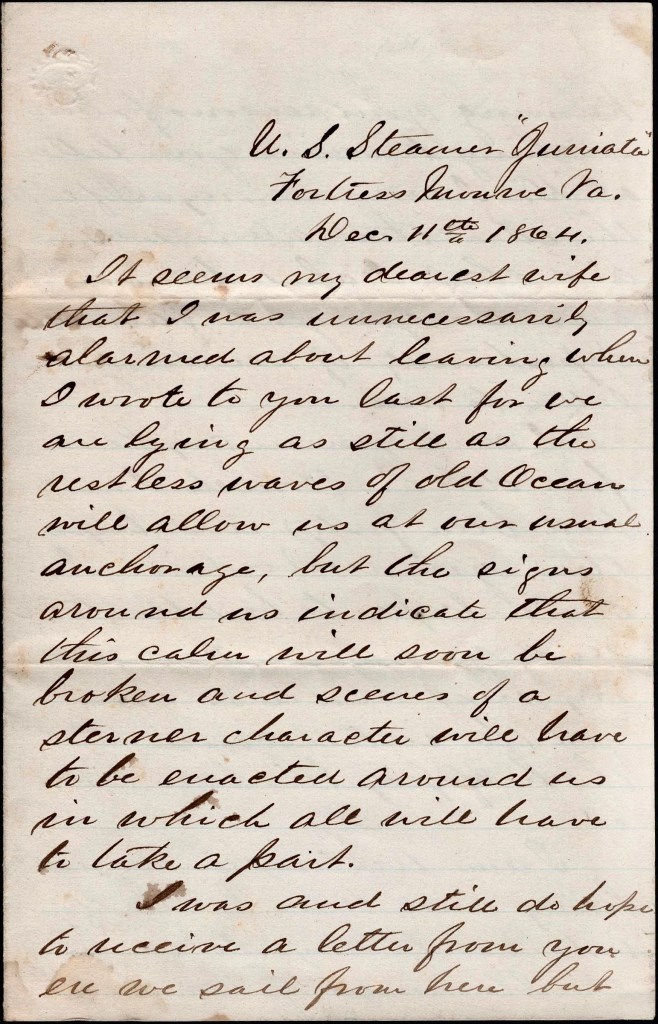 U. S. Steamer "Juniata"
Fortress Monroe Va.
Dec. 11th 1864.
It seems my dearest wife
that I was unnecessarily
alarmed about leaving when
I wrote to you last for we
are lying as still as the
restless waves of old Ocean
will allow us at our usual
anchorage, but the signs
around us indicate that
this calm will soon be
broken and scenes of a
sterner character will have
to be enacted around us
in which all will have
to take a part.
I was and still do hope
to receive a letter from you
ere we sail from here but